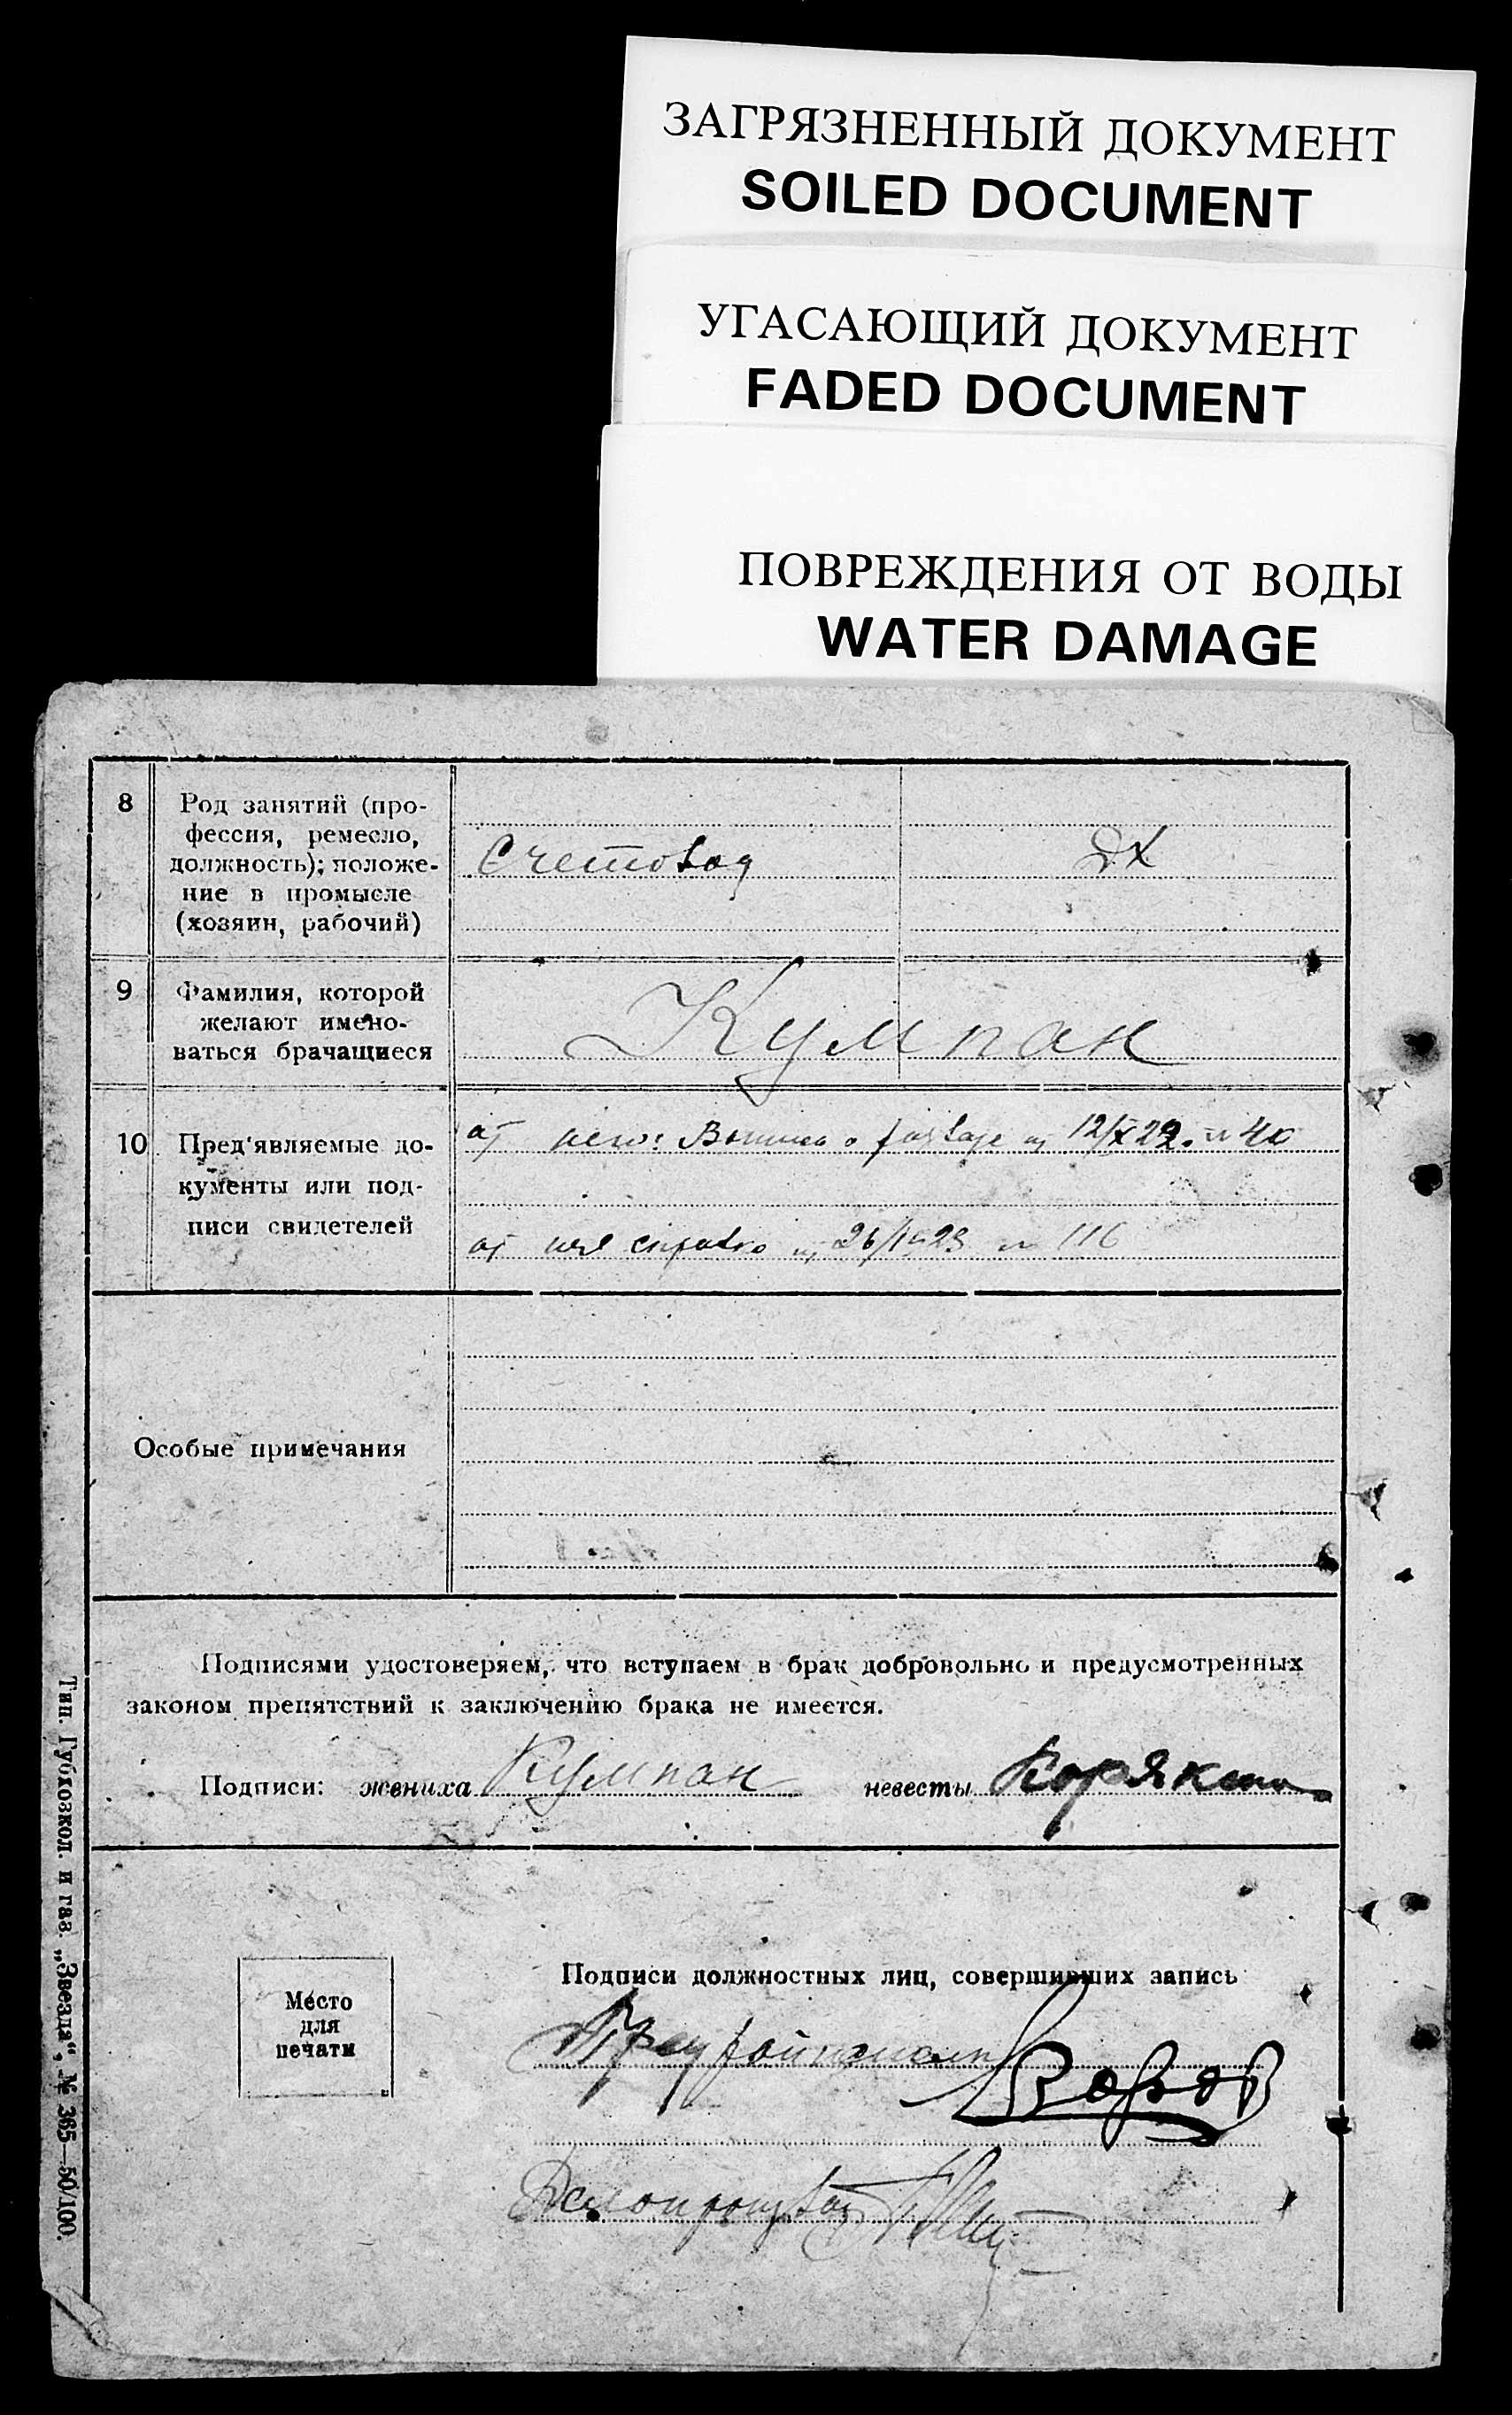 ЗАГРЯЗНЕННЫЙ ДОКУМЕНТ
SOILED DOCUMENT
УГАСАЮЩИЙ ДОКУМЕНТ
FADED DOCUMENT
ПОВРЕЖДЕНИЯ ОТ ВОДЫ
WATER DAMAGE
8
Род занятий (про-
фессия, ремесло,
должность); положе-
ние в промысле
(хозяин, рабочий)
Счетовод
ДХ
9
Фамилия, которой
желают имено-
ваться брачащиеся
Кумпан
10
Пред'являемые до-
кументы или под-
писи свидетелей
от него: Выписка о разводе от 12/X 22. № 40
от нея справка от 26/I-23 № 116
Особые примечания
Подписями удостоверяем, что вступаем в брак добровольно и предусмотренных
законом препятствий к заключению брака не имеется.
Подписи: жениха Кумпан невесты Корякина
Место
для
печати
Подписи должностных лиц, совершивших запись
Пред райисполк
Делопроизвод
Тип. Губсовхоз. и газ. „Звезда“, № 365—50/100.